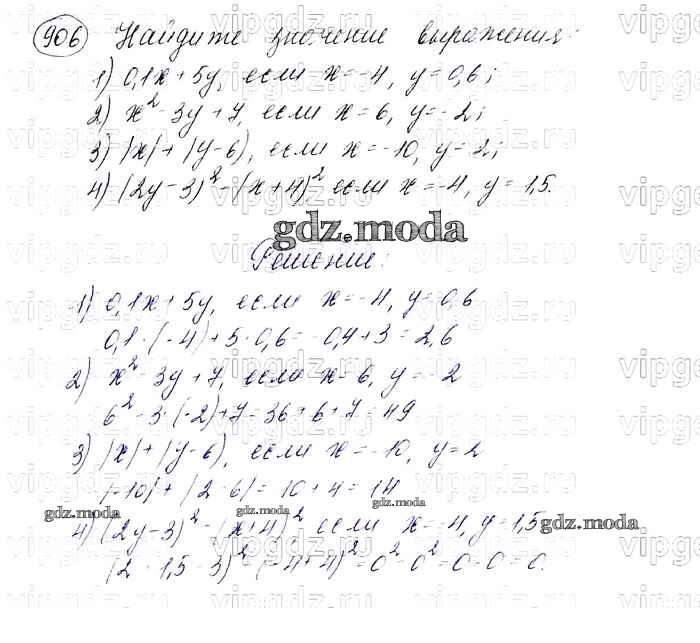 906 Найдите значение выражения:
1) 0,1x + 5y, если x = -4, y = 0,6;
2) x² - 3y + 7, если x = 6, y = -2;
3) |x| + |y-6|, если x = -10, y = 2;
4) (2y-3)² - (x+4)² если x = -4, y = 1,5.
gdz.moda
Решение:
1) 0,1x + 5y, если x = -4, y = 0,6
0,1·(-4) + 5·0,6 = -0,4 + 3 = 2,6
2) x² - 3y + 7, если x = 6, y = -2
6² - 3·(-2) + 7 = 36 + 6 + 7 = 49
3) |x| + |y-6|, если x = -10, y = 2
|-10| + |2-6| = 10 + 4 = 14
gdz.moda gdz.moda
4) (2y-3)² - (x+4)² если x = -4, y = 1,5 gdz.moda
(2·1,5-3)² - (-4+4)² = 0² - 0² = 0 - 0 = 0.